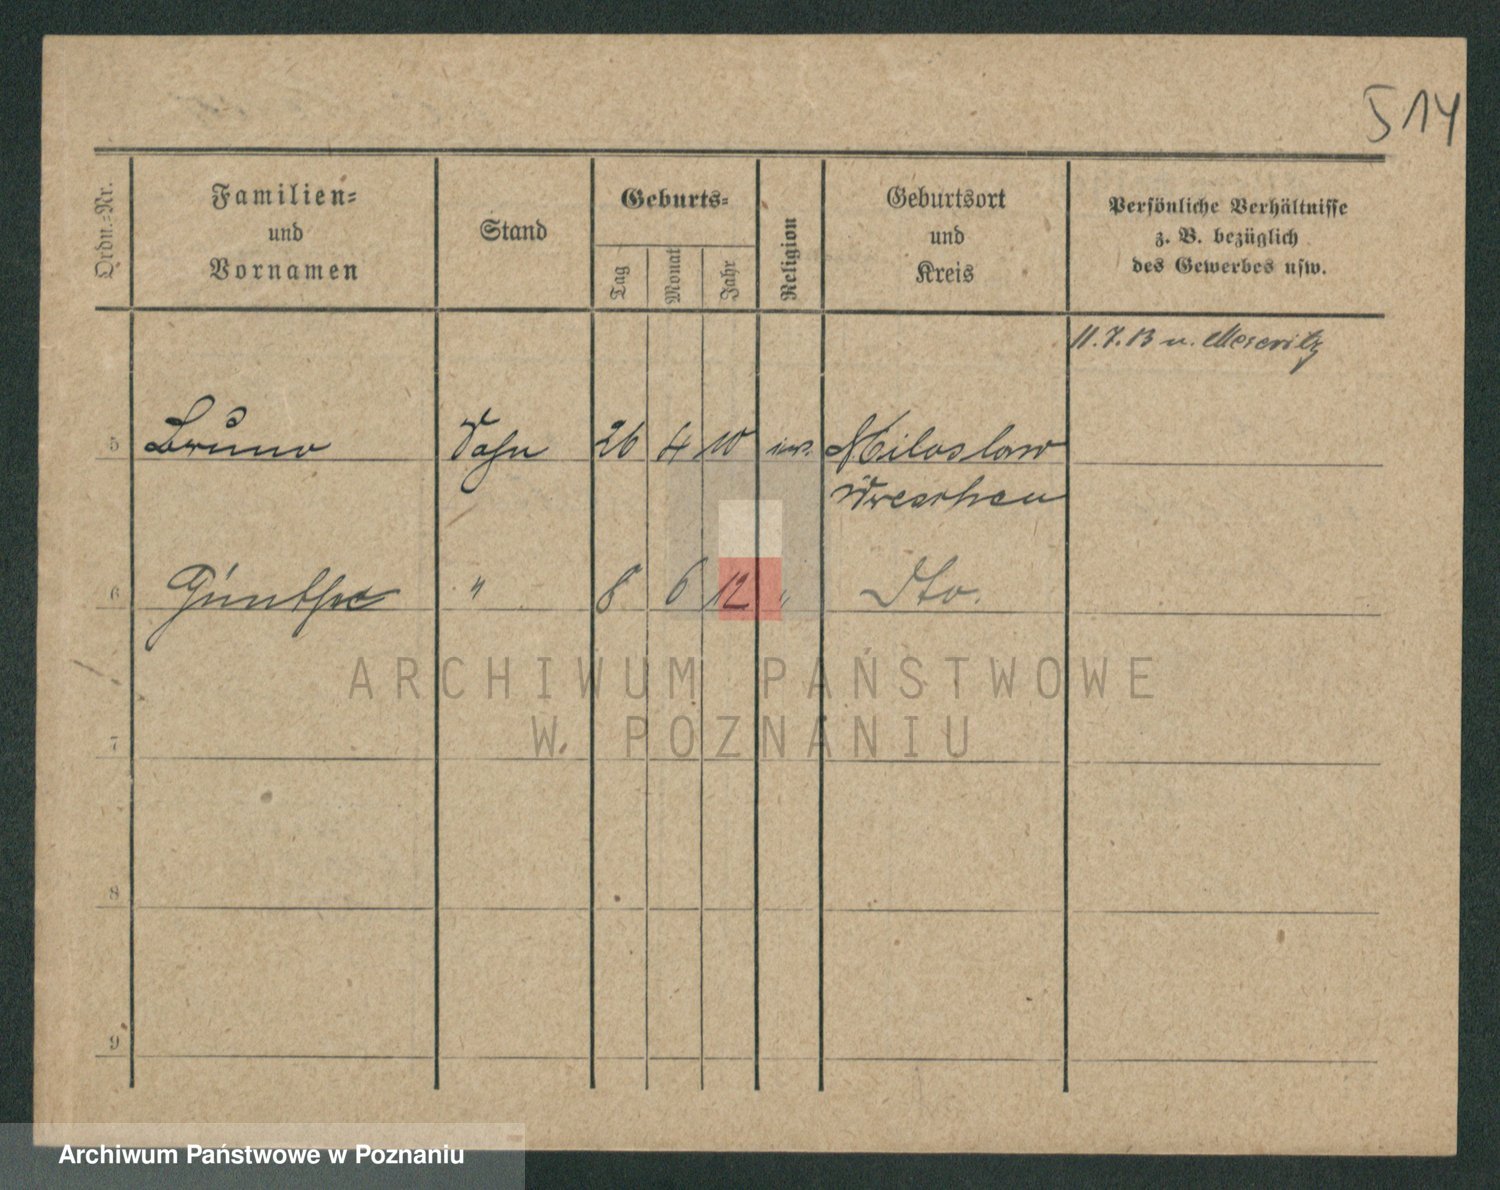 514
Ordn.=Nr.
Familien=
und
Vornamen
Stand
Geburts=
Tag
Monat
Jahr
Religion
Geburtsort
und
Kreis
Persönliche Verhältnisse
z. B. bezüglich
des Gewerbes usw.
11.7.13 n. Meseritz
5 Bruno Sohn 26 4 10 Miloslaw
Wreschen
6 Günther " 8 6 12 " Dto.
ARCHIWUM PAŃSTWOWE
W POZNANIU
7
8
9
Archiwum Państwowe w Poznaniu